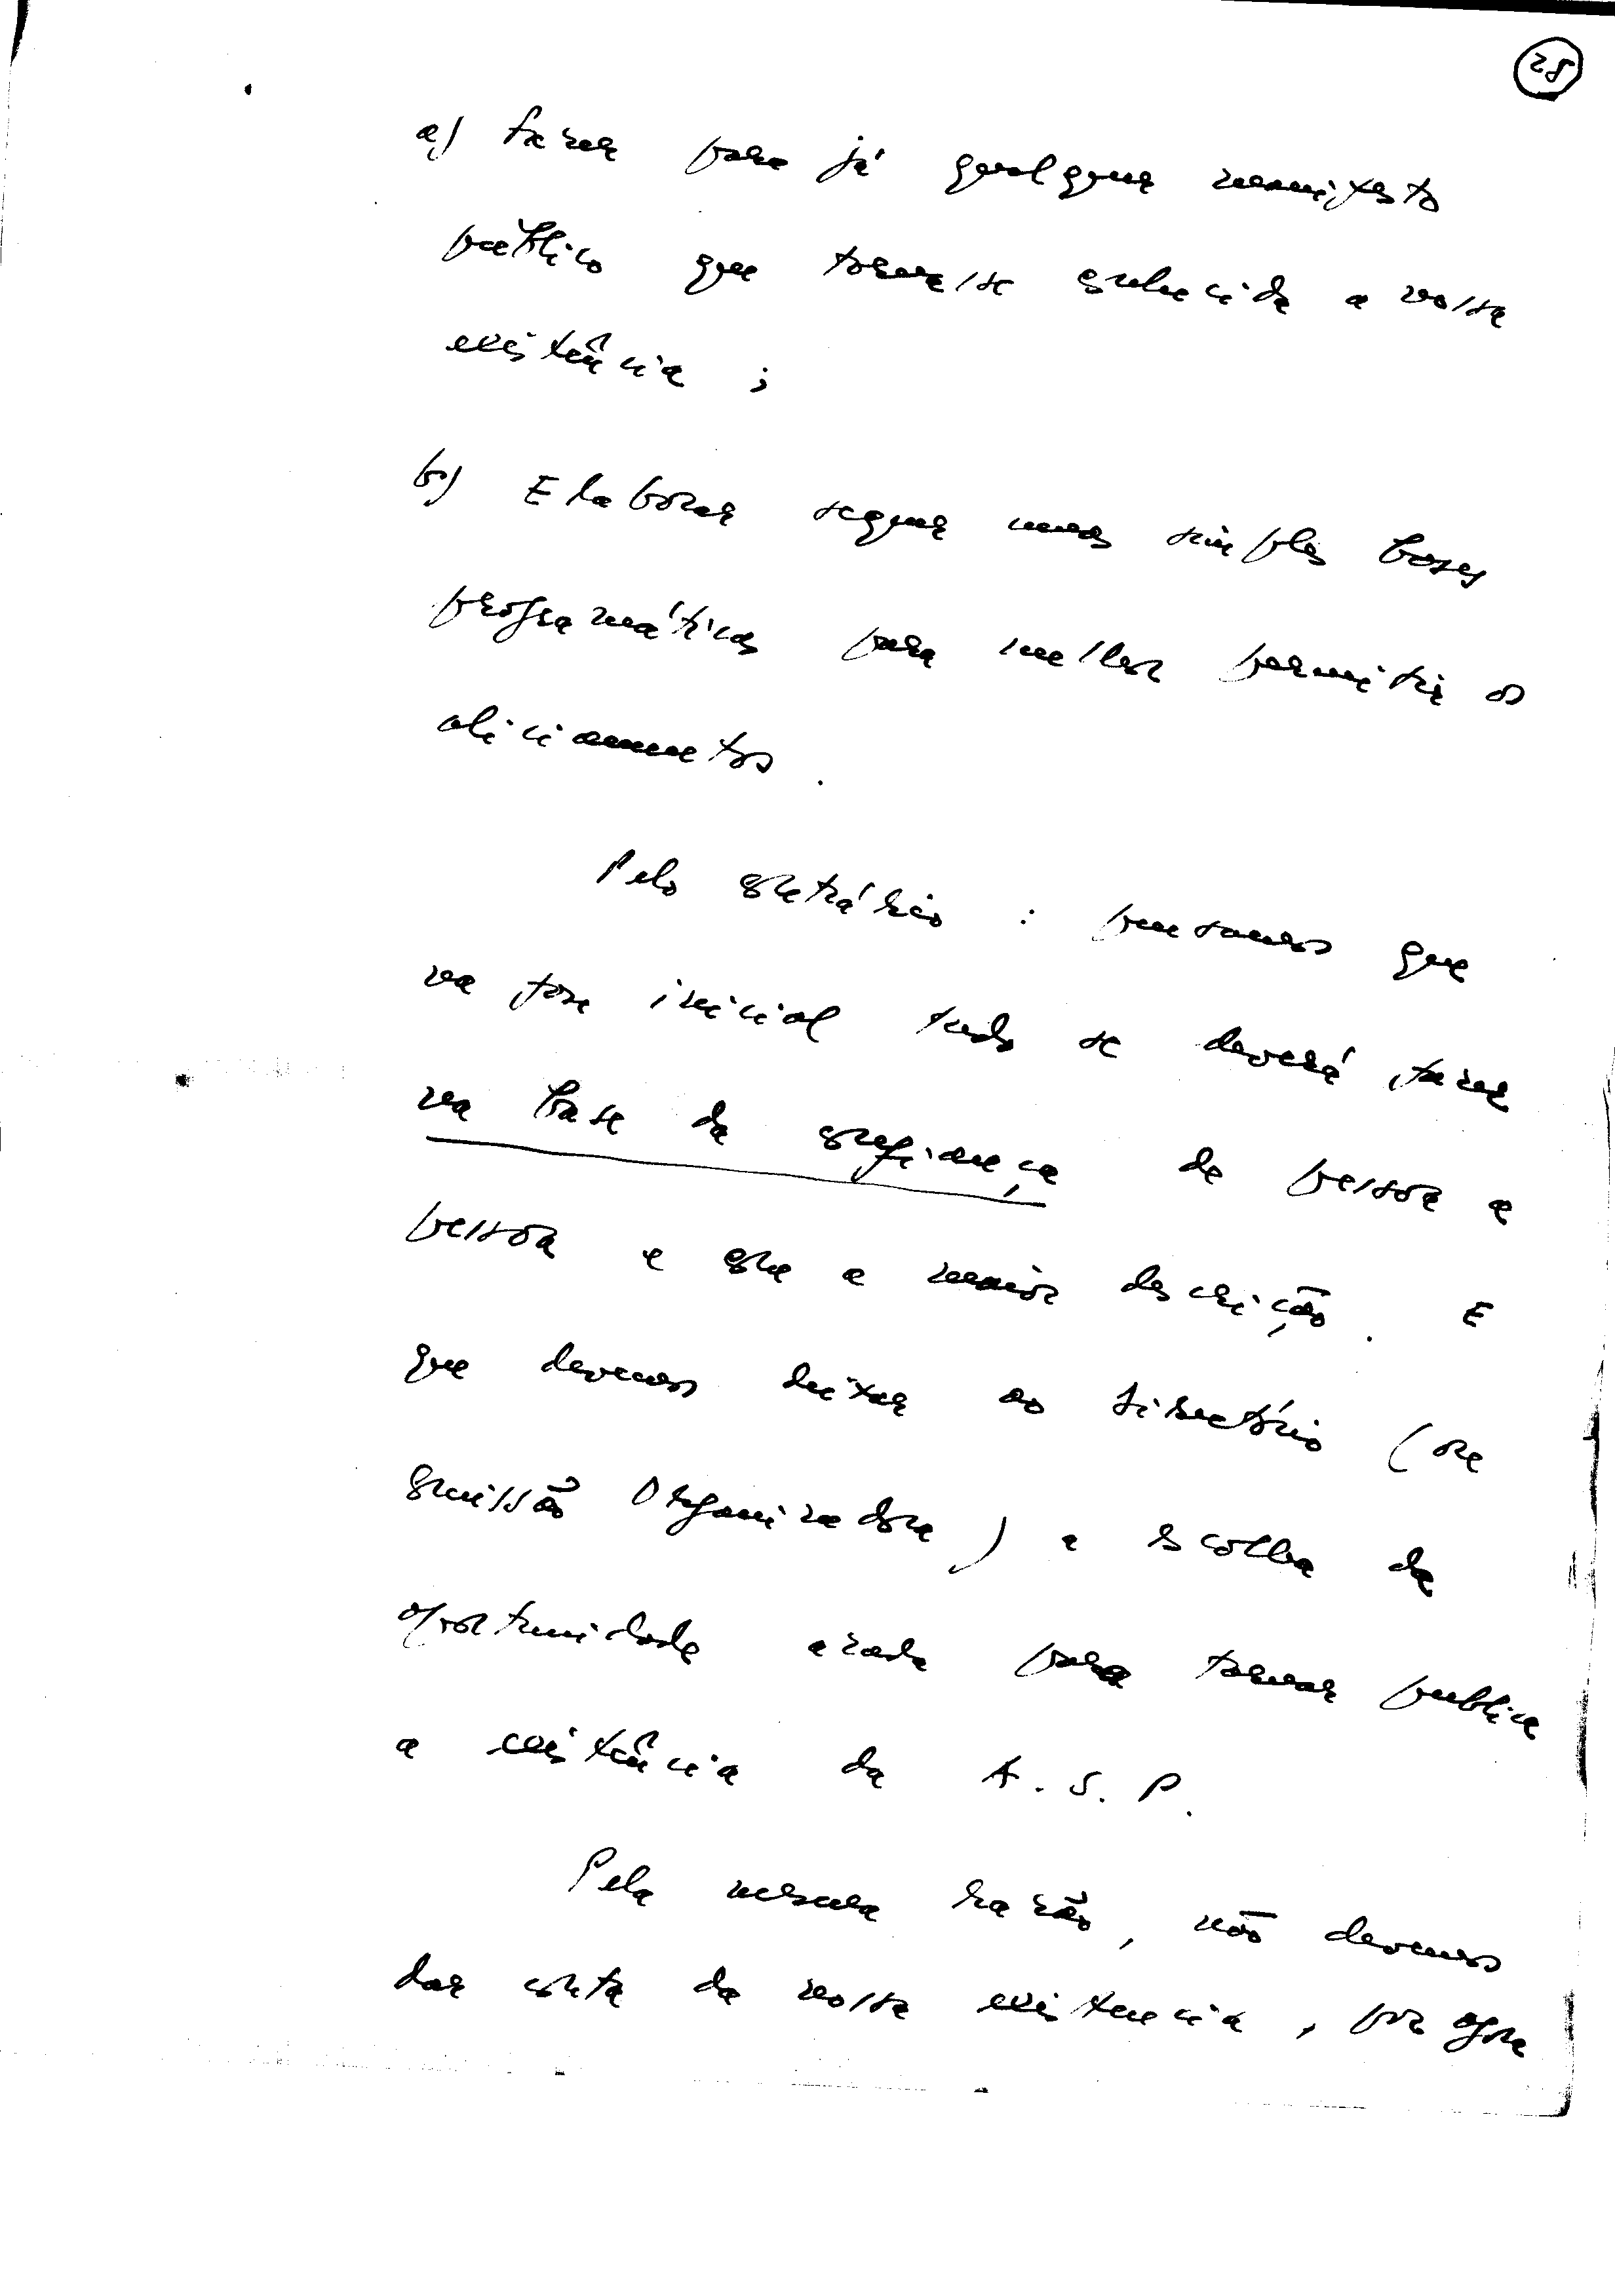 28
a) fazer para já qualquer manifesto
público que tornasse conhecida a nossa
existência ;
b) Elaborar sequer umas simples bases
programáticas para melhor permitir o
aliciamento .
Pelo contrário : pensamos que
na fase inicial tudo se deverá fazer
na base da confiança de pessoa a
pessoa e com a maior descrição . E
que devemos deixar ao Directório (ou
Comissão Organizadora) a escolha da
oportunidade azada para tornar publica
a existência da A.S.P.
Pela mesma razão, não devemos
dar conta da nossa existencia , por ora